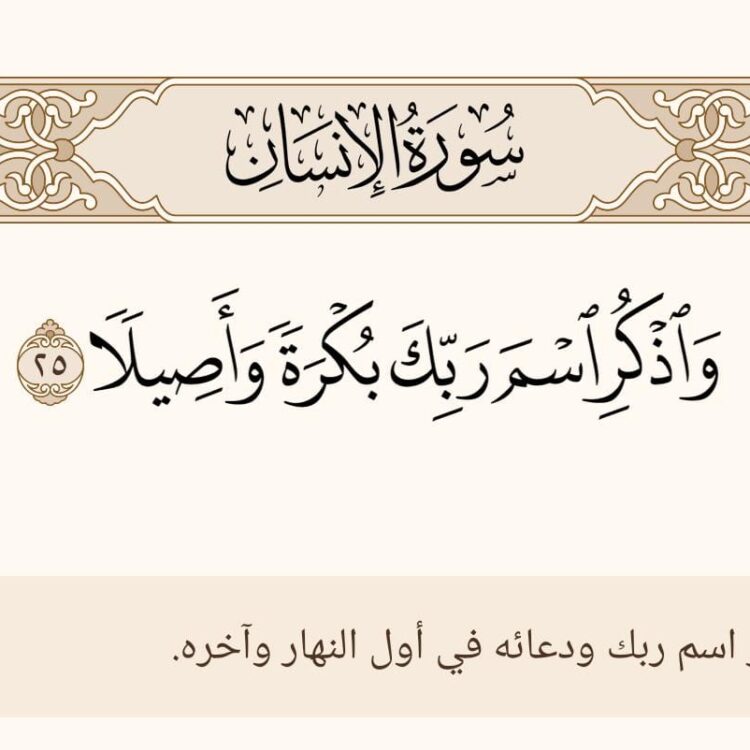 سُورَةُ الإِنسَانِ
وَٱذْكُرِ ٱسْمَ رَبِّكَ بُكْرَةً وَأَصِيلًا ٢٥
اسم ربك ودعائه في أول النهار وآخره.